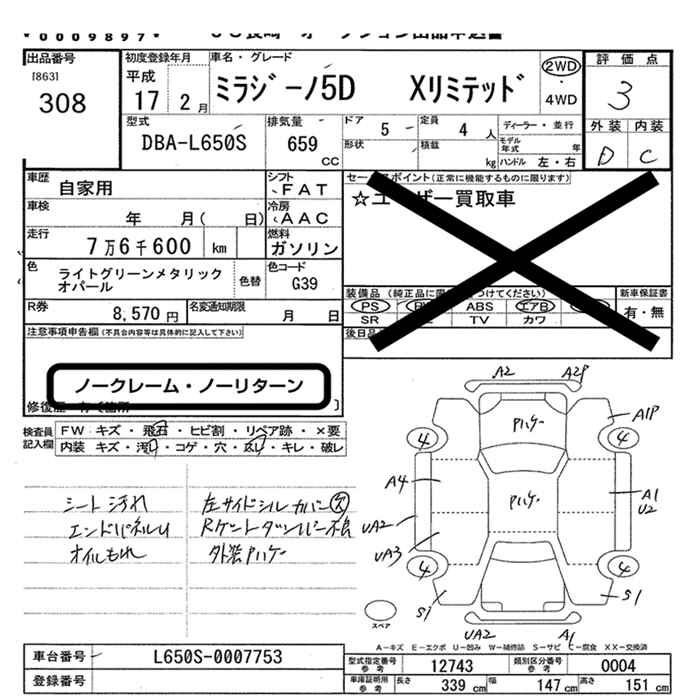 *0009897*
出品番号
[863]
308
初度登録年月
平成
17 2月
車名・グレード
ミラジーノ5D Xリミテッド
2WD
・
4WD
評価点
3
外装 内装
D C
型式
DBA-L650S
排気量
659
CC
ドア 5
形状
定員 4 人
積載 kg
ディーラー・並行
モデル年式 年
ハンドル 左・右
車歴
自家用
シフト
FAT
車検
年 月( 日)
冷房
AAC
走行
7万6千600 km
燃料
ガソリン
色
ライトグリーンメタリック
オパール
色替
色コード
G39
R券
8,570 円
名変通知期限
月 日
セールスポイント(正常に機能するものに限ります)
☆ユーザー買取車
装備品
PS
ABS
エアB
SR
TV
カワ
新車保証書
有・無
注意事項申告欄(不具合内容等は具体的に記入して下さい)
ノークレーム・ノーリターン
検査員
記入欄
FW キズ・飛石・ヒビ割・リペア跡・×要
内装 キズ・汚れ・コゲ・穴・のり・キレ・破レ
シート汚れ
エンドパネルU
オイルもれ
左サイドシルカバー欠
Rゲートダンパー不良
外装Pハゲ
A2 A2P
Pハゲ
A1P
4 4
A4
Pハゲ
A1
U2
UA2
UA3
4 4
S1 S1
UA2 A1
スペア
A-キズ E-エクボ U-凹み W-補修跡 S-サビ C-腐食 XX-交換済
車台番号
L650S-0007753
登録番号
型式指定番号
参考
12743
類別区分番号
参考
0004
車庫証明用
参考
長さ 339 cm
幅 147 cm
高さ 151 cm